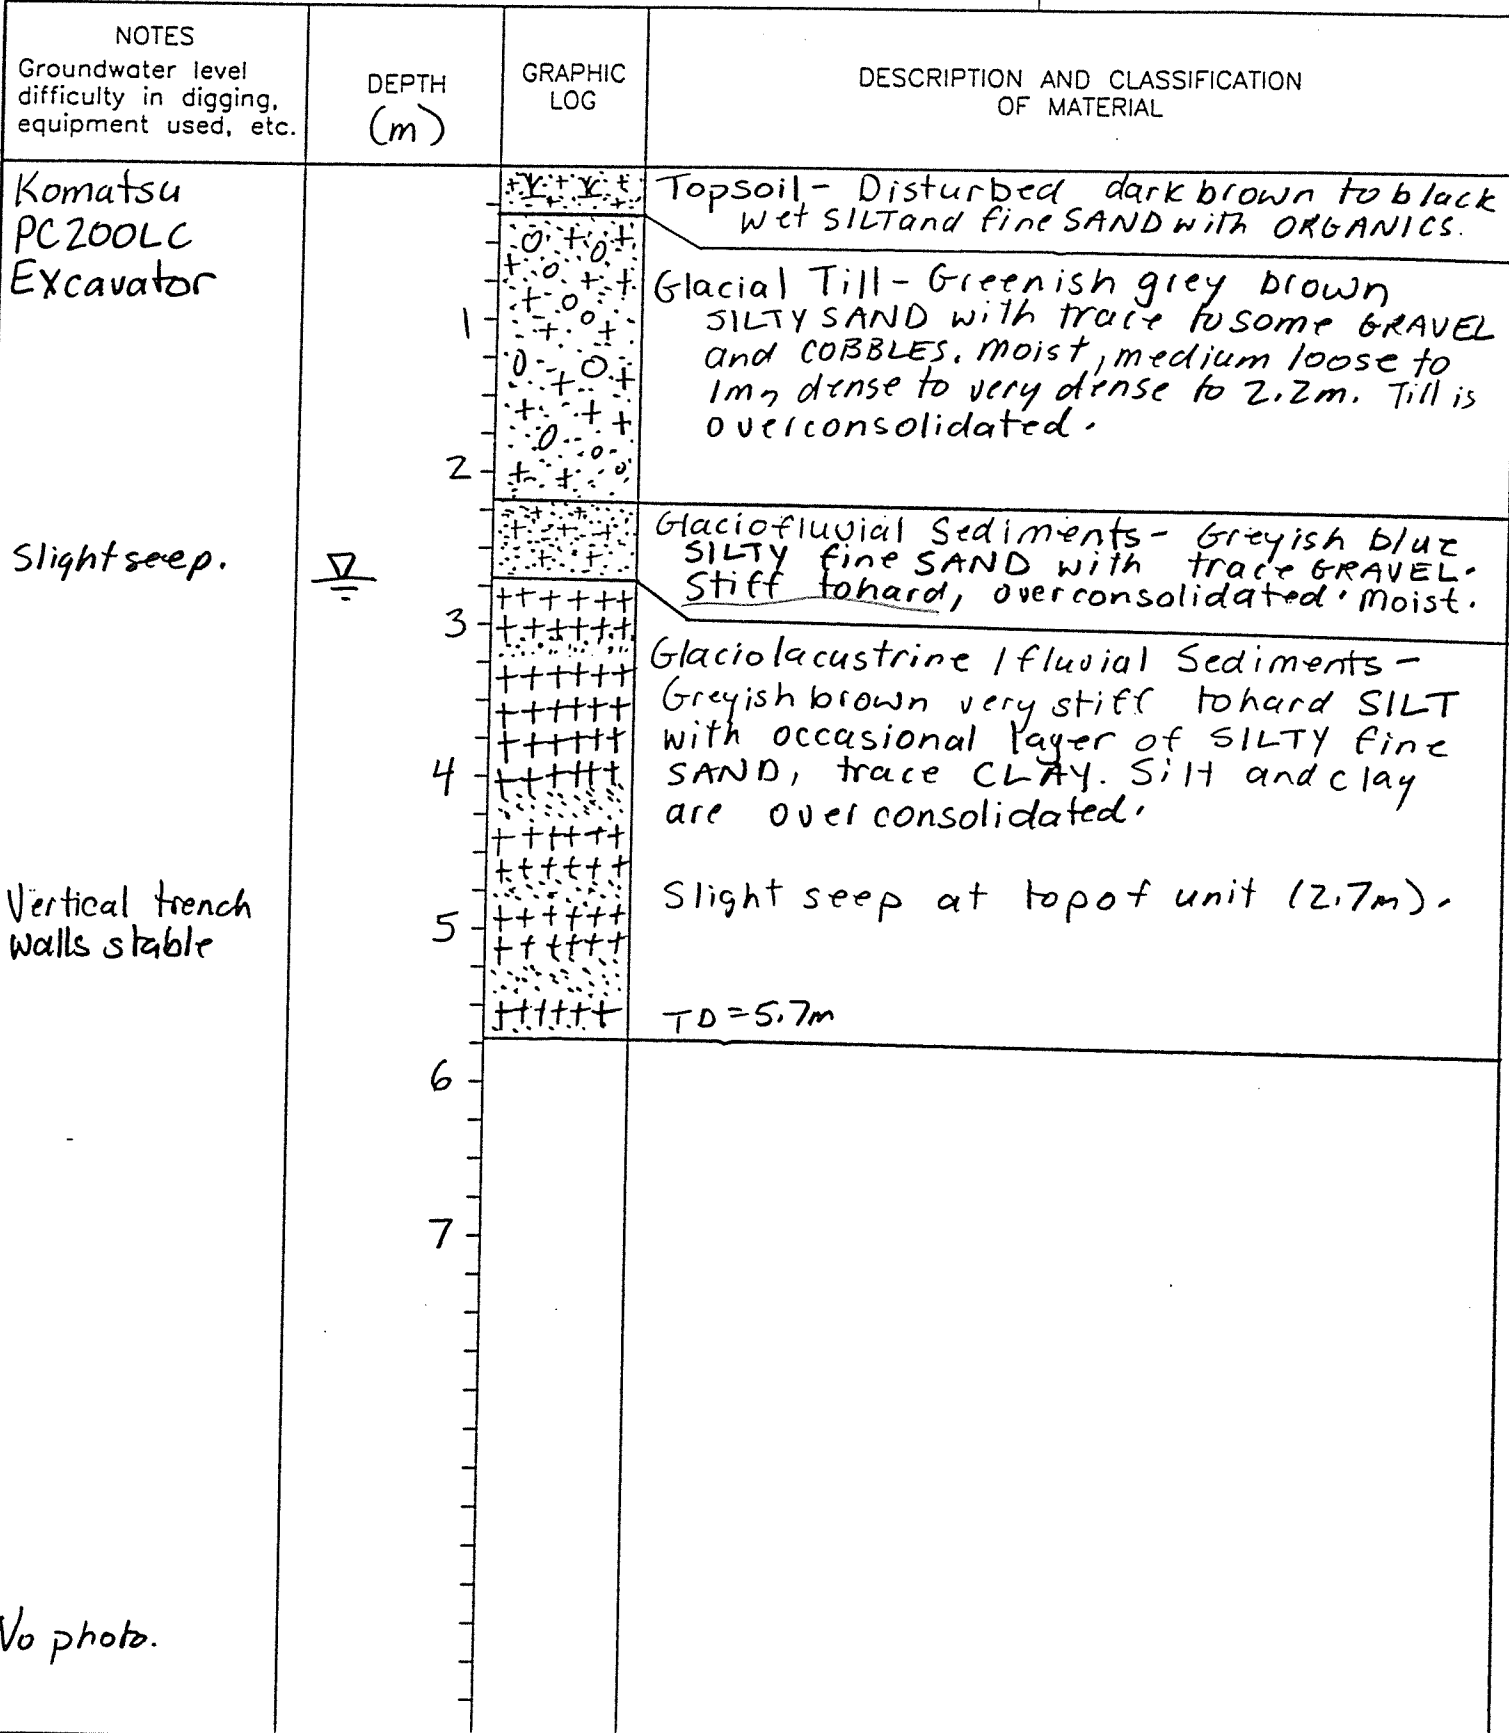 NOTES
Groundwater level
difficulty in digging,
equipment used, etc.
DEPTH
(m)
GRAPHIC
LOG
DESCRIPTION AND CLASSIFICATION
OF MATERIAL
Komatsu
PC200LC
Excavator
Topsoil - Disturbed dark brown to black
wet SILT and fine SAND with ORGANICS.
Glacial Till - Greenish grey brown
SILTY SAND with trace to some GRAVEL
and COBBLES. Moist, medium loose to
1m, dense to very dense to 2.2m. Till is
overconsolidated.
1
2
Glaciofluvial Sediments - Greyish blue
SILTY fine SAND with trace GRAVEL.
Stiff to hard, overconsolidated. Moist.
Slight seep.
3
Glaciolacustrine / fluvial Sediments -
Greyish brown very stiff to hard SILT
with occasional layer of SILTY fine
SAND, trace CLAY. Silt and clay
are overconsolidated.
4
Slight seep at top of unit (2.7m).
Vertical trench
walls stable
5
TD = 5.7m
6
7
No photo.